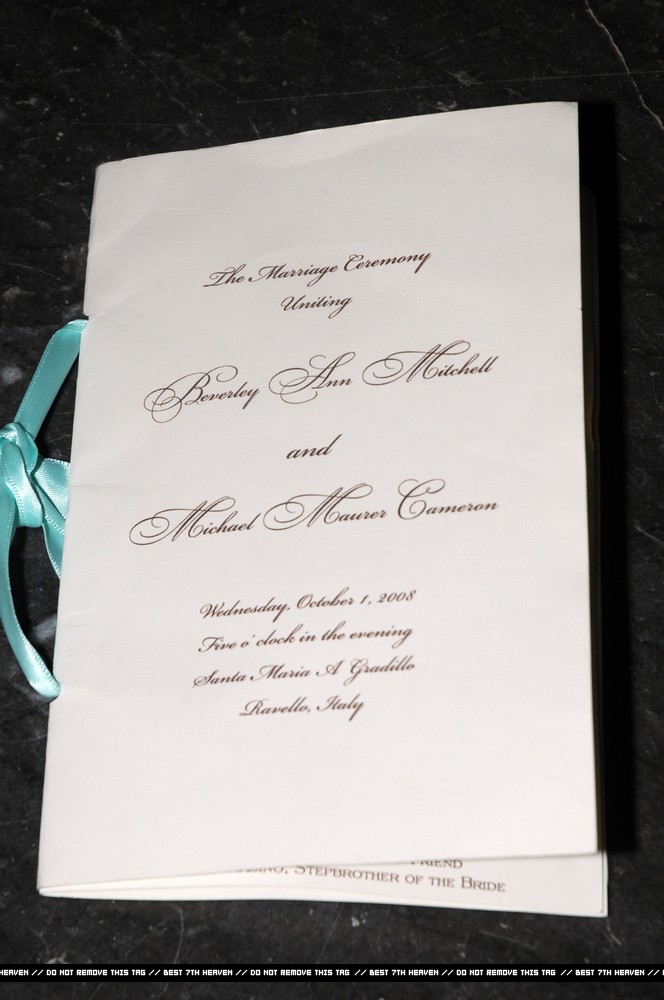 The Marriage Ceremony
Uniting
Beverley Ann Mitchell
and
Michael Maurer Cameron
Wednesday, October 1, 2008
Five o' clock in the evening
Santa Maria A Gradillo
Ravello, Italy
Friend
Stepbrother of the Bride
HEAVEN // DO NOT REMOVE THIS TAG // BEST 7TH HEAVEN // DO NOT REMOVE THIS TAG // BEST 7TH HEAVEN // DO NOT REMOVE THIS TAG // BEST 7TH HEAVEN //